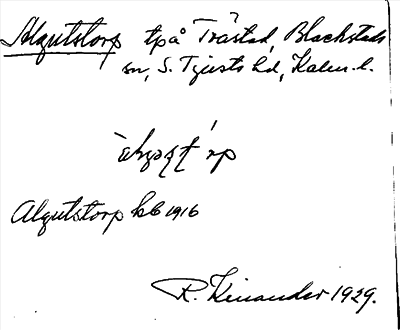 Algutstorp tpå Tråstad, Blackstads
sn, S. Tjusts hd, Kalm. l.
Algutstorp kb 1916
R. Kinander 1929.